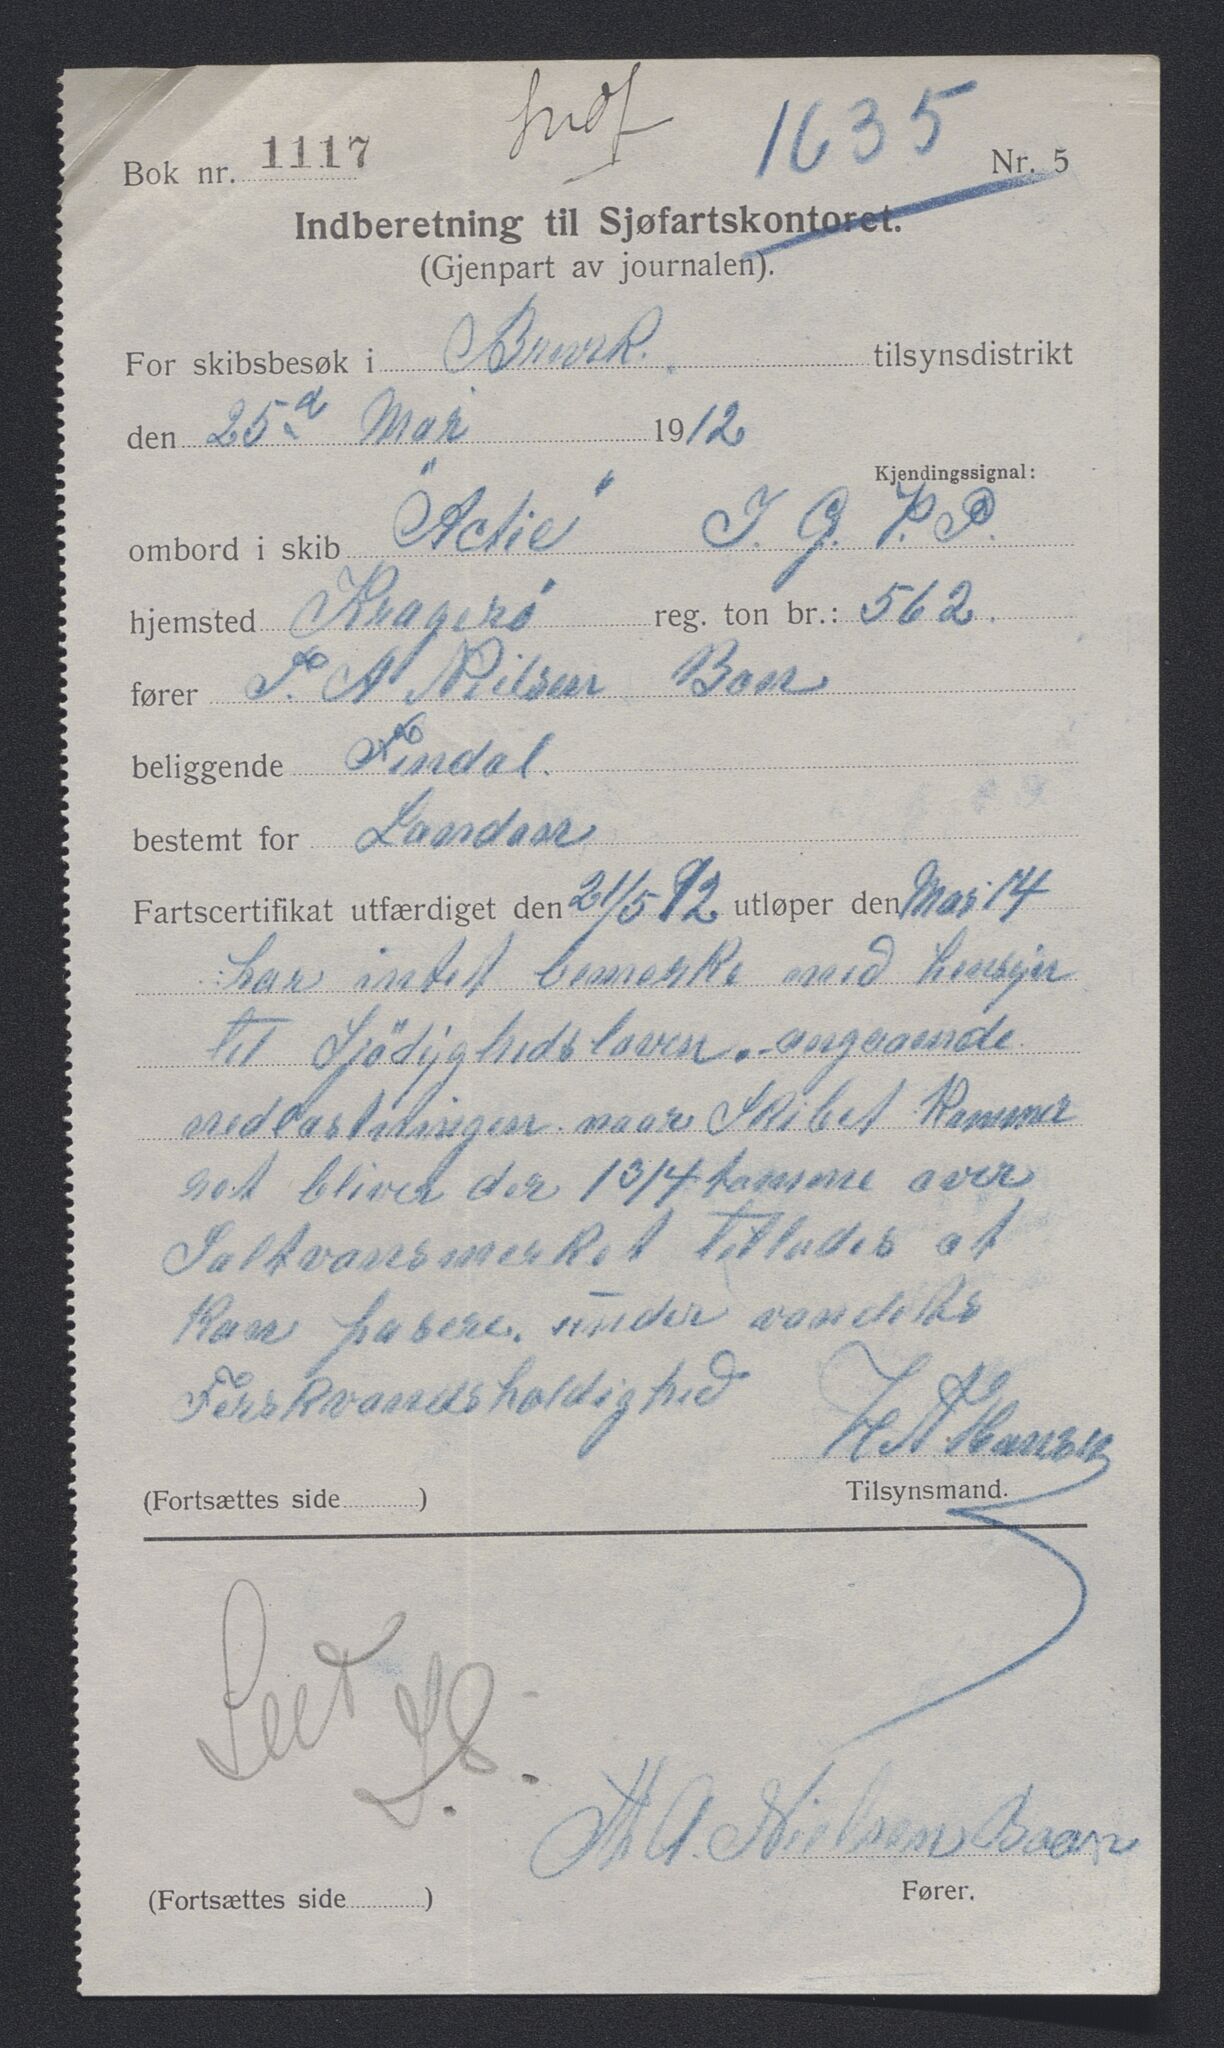 1635
Bok nr. 1117 Nr. 5
Indberetning til Sjøfartskontoret.
(Gjenpart av journalen).
For skibsbesøk i Brevik. tilsynsdistrikt
den 25d Mai 1912
Kjendingssignal:
ombord i skib "Actie" J. G. P. P.
hjemsted Kragerø reg. ton br.: 562.
fører T. A Nielsen Boen
beliggende Findal.
bestemt for London
Fartscertifikat utfærdiget den 21/5 12 utløper den Mai 14
har intet bemerke med hensyn
til Sjödyghedsloven. angaaende
nedlastningen naar Skibet kommer
ret bliver der 1 3/4 tomme over
Saltvansmerket tillades at
kan pasere. under vandets
Ferskvandsholdighed
H A Hansen
(Fortsættes side ) Tilsynsmand.
Seet
Th A. Nielsen Boen
(Fortsættes side ) Fører.